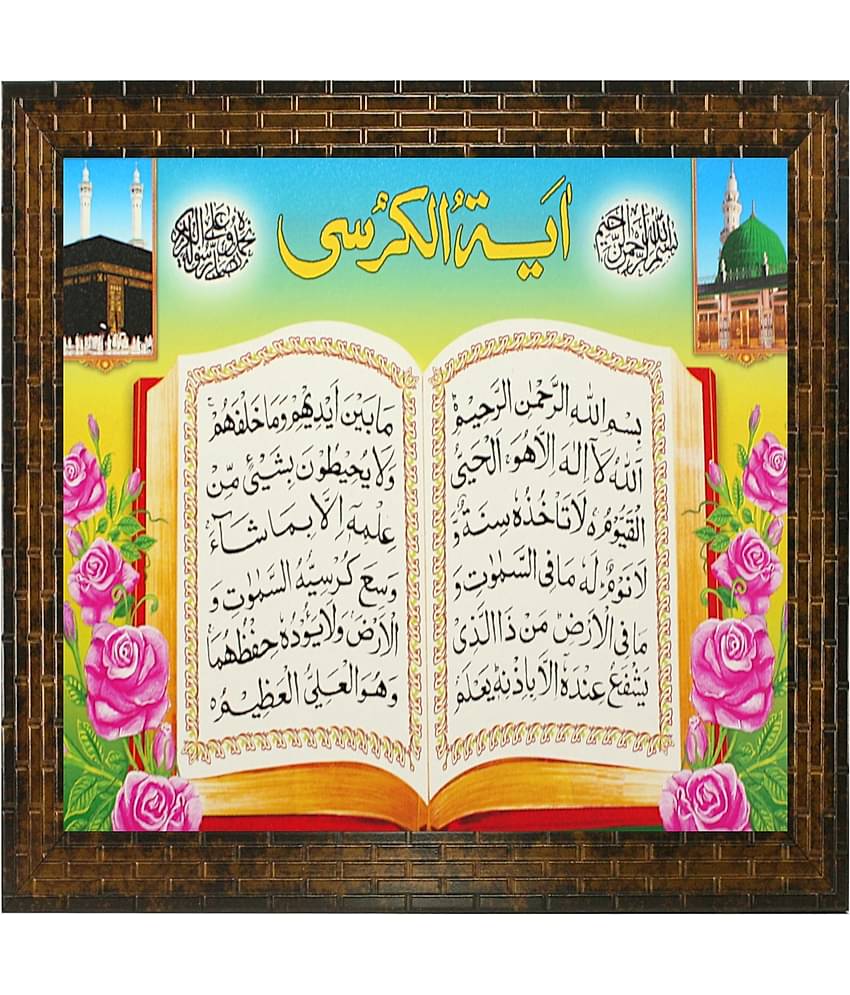 اٰیَةُ الْکُرْسِی
بسم الله الرحمن الرحیم
نحمده ونصلی علی رسوله الکریم
بِسْمِ اللهِ الرَّحْمٰنِ الرَّحِیْمِ
اَللهُ لَآ اِلٰهَ اِلَّا هُوَ اَلْحَیُّ
الْقَیُّوْمُ لَا تَاْخُذُهٗ سِنَةٌ وَّ
لَا نَوْمٌ لَهٗ مَا فِی السَّمٰوٰتِ وَ
مَا فِی الْاَرْضِ مَنْ ذَا الَّذِیْ
یَشْفَعُ عِنْدَهٗ اِلَّا بِاِذْنِهٖ یَعْلَمُ
مَا بَیْنَ اَیْدِیْهِمْ وَمَا خَلْفَهُمْ
وَلَا یُحِیْطُوْنَ بِشَیْئٍ مِّنْ
عِلْمِهٖ اِلَّا بِمَا شَآءَ
وَسِعَ کُرْسِیُّهُ السَّمٰوٰتِ وَ
الْاَرْضَ وَلَا یَوْدُهٗ حِفْظُهُمَا
وَهُوَ الْعَلِیُّ الْعَظِیْمُ